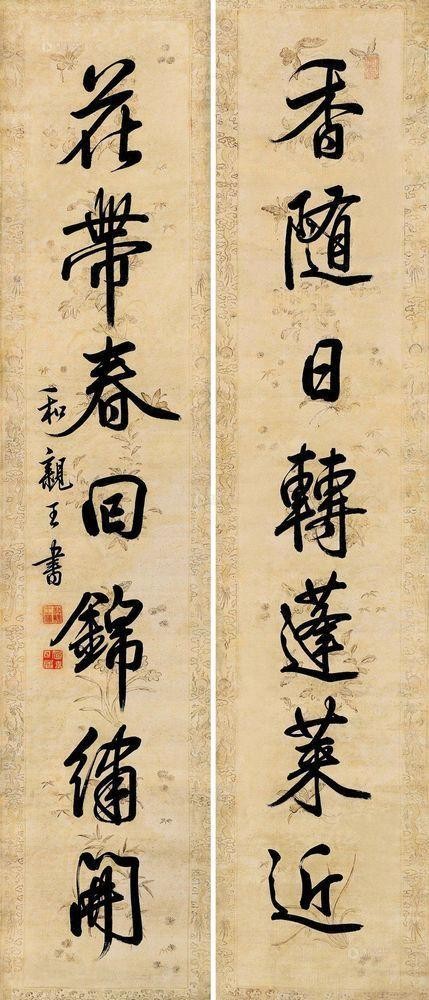 香隨日轉蓬萊近
花帶春回錦繡開
和親王書